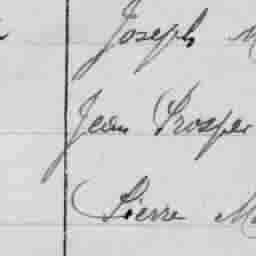 Joseph
Jean Prosper
Pierre